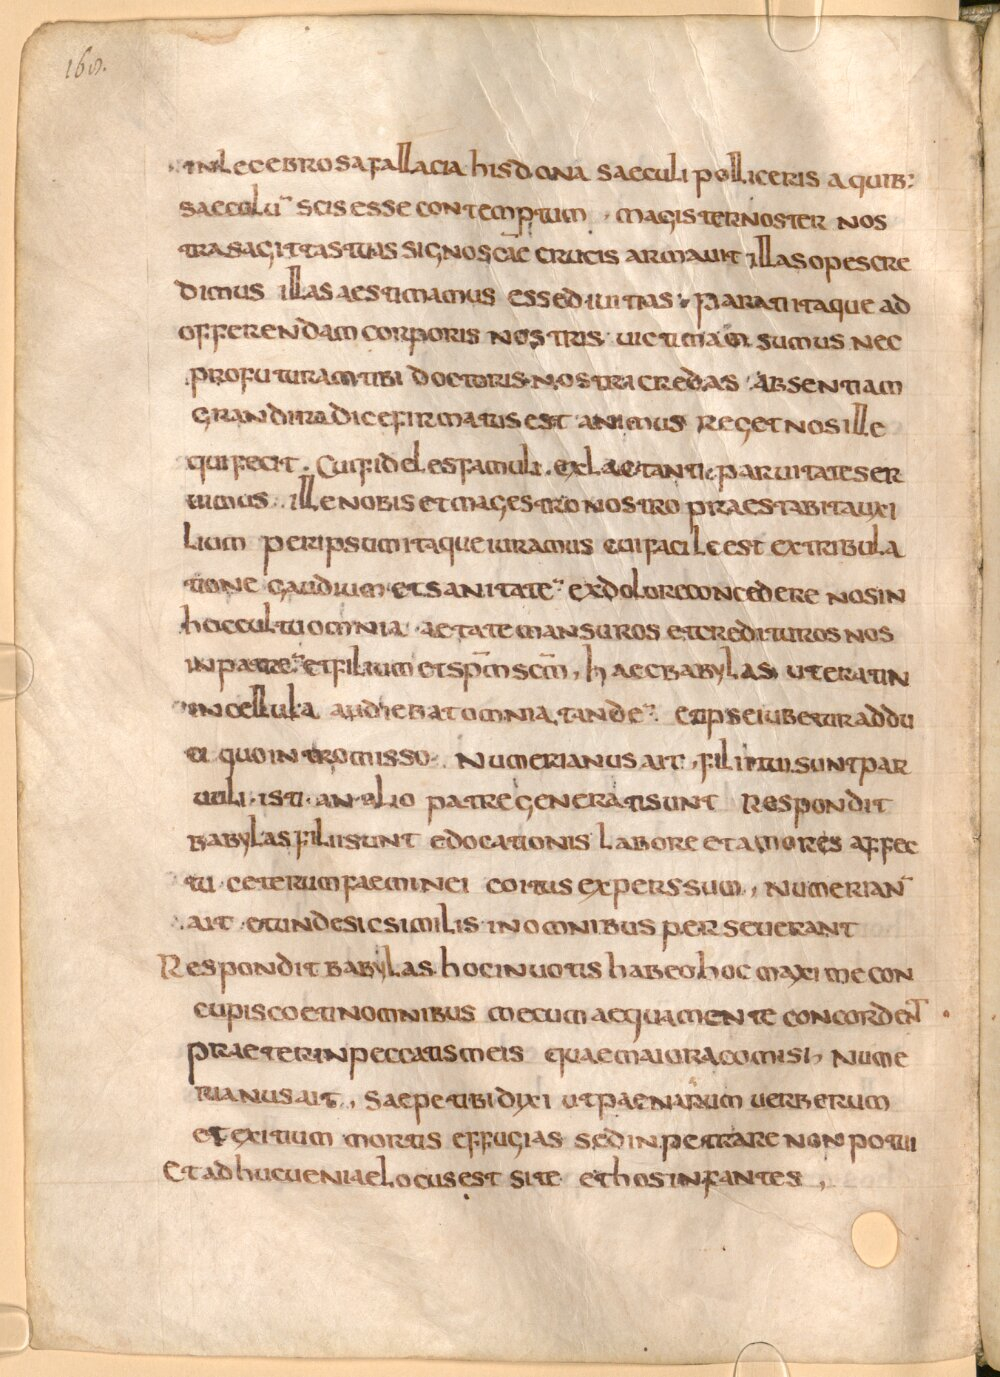 160.
inlecebrosa fallacia his dona saeculi polliceris a quib:
saecolu~ scis esse contemptum, magister noster nos
tra sagittas tuas signo s̄c̄ae crucis armauit illas opes cre
dimus illas aestimamus esse diuitias. Parati itaque ad
offerendam corporis nostris uictimam sumus nec
profuturam tibi doctoris nostri credas absentiam
grandi radice firmatus est animus reget nos ille
qui fecit. Cui fideles famuli. ex lactanti paruitate ser
uimus. ille nobis et magestro nostro praestabit auxi
lium per ipsum itaque iuramus cui facile est ex tribula
tione gaudium et sanitate~ ex dolore concedere nos in
hoc cultu omnia aetate mansuros et credituros nos
in patre~ et filium et sp̄m s̄c̄m, haec babylas ut erat in
in cellula audiebat omnia, tande~. et ipse iubetur addu
ci quo intromisso. Numerianus ait, filii tui sunt par
uuli. isti. an alio patre generati sunt Respondit
babylas filii sunt edocationis labore et amores affec
tu ceterum faeminei coitus expers sum, numerian~
ait et unde sic similis in omnibus perseuerant
Respondit babylas. hoc in uotis habeo hoc maxime con
cupisco et in omnibus mecum aequa mente concordent
praeter in peccatis meis quae maiora comisi, Nume
rianus ait, saepe tibi dixi ut paenarum uerberum
et exitium mortis effugias sed inpetrare non potui
Et adhuc ueniae locus est si te et hos infantes,